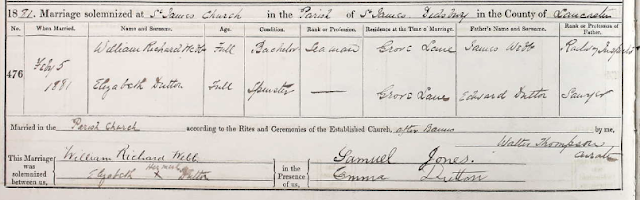 1881. Marriage solemnized at St James Church in the Parish of St James Didsbury in the County of Lancaster
No. When Married. Name and Surname. Age. Condition. Rank or Profession. Residence at the Time of Marriage. Father's Name and Surname. Rank or Profession of Father.
476 Feby 5 1881 William Richard Webb Full Bachelor Seaman Grove Lane James Webb Railway Inspector
Elizabeth Dutton Full Spinster — Grove Lane Edward Dutton Sawyer
Married in the Parish Church according to the Rites and Ceremonies of the Established Church, after Banns by me,
Walter Thompson
Curate
This Marriage was solemnized between us, William Richard Webb
Elizabeth X her mark Dutton
in the Presence of us, Samuel Jones.
Emma Dutton